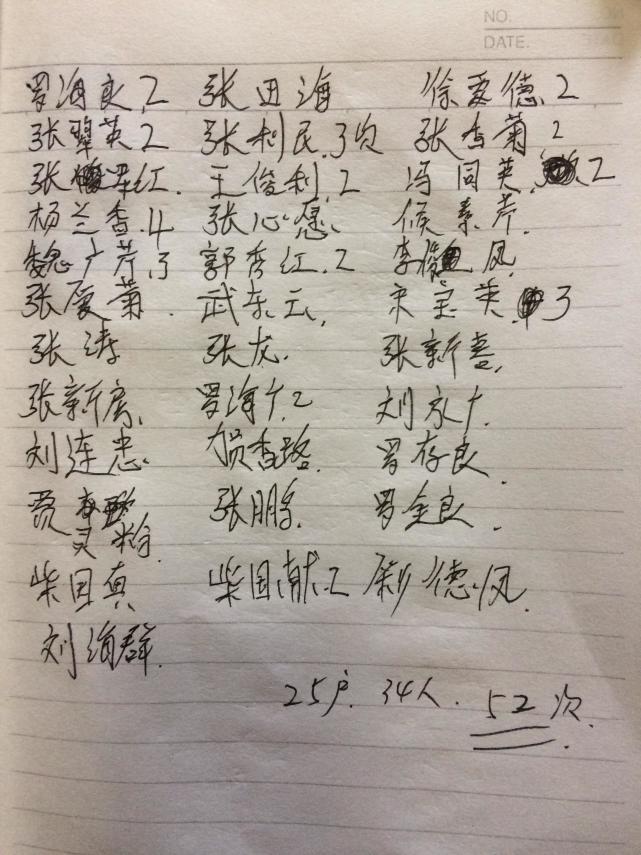 NO.
DATE.
罗海良.2 张田海 徐爱德.2
张翠英2 张利民.3次 张香菊2
张翠红. 王俊利.2 冯同英.2
杨兰香.4 张心愿. 候素芹.
魏广芹.3 郭秀红.2 李俊凤.
张厦菊. 武东云. 宋宝英.3
张涛 张龙. 张新喜.
张新房. 罗海广.2 刘永广.
刘连忠. 贺香路. 罗存良.
贾 张鹏. 罗金良.
灵粉.
柴国真 柴国献.2 德凤.
刘海群.
25户. 34人. 52次.